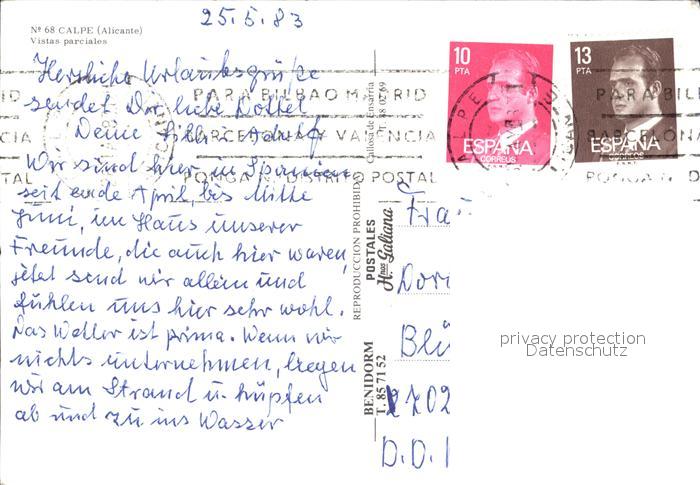 25.5.83
Nº 68 CALPE (Alicante)
Vistas parciales
Herzliche Urlaubsgrüße
sendet Dir liebe
Deine
Wir sind hier in Spanien
seit ende April, bis Mitte
Juni, im Haus unserer
Freunde, die auch hier waren,
jetzt send wir allein und
fühlen uns hier sehr wohl.
Das Wetter ist prima. Wenn wir
nichts unternehmen, liegen
wir am Strand u. hüpfen
ab und zu ins Wasser
PARA BILBAO MADRID
BARCELONA Y VALENCIA
PONGA N DISTRITO POSTAL
REPRODUCCION PROHIBIDA
POSTALES
Hnos Galiana
BENIDORM
T. 85 71 52
10
PTA
ESPAÑA
CORREOS
13
PTA
ESPAÑA
CORREOS
PARA BIL
BARCELONA
PONGA N D
Fra
Dori
Blü
D.D.
privacy protection
Datenschutz